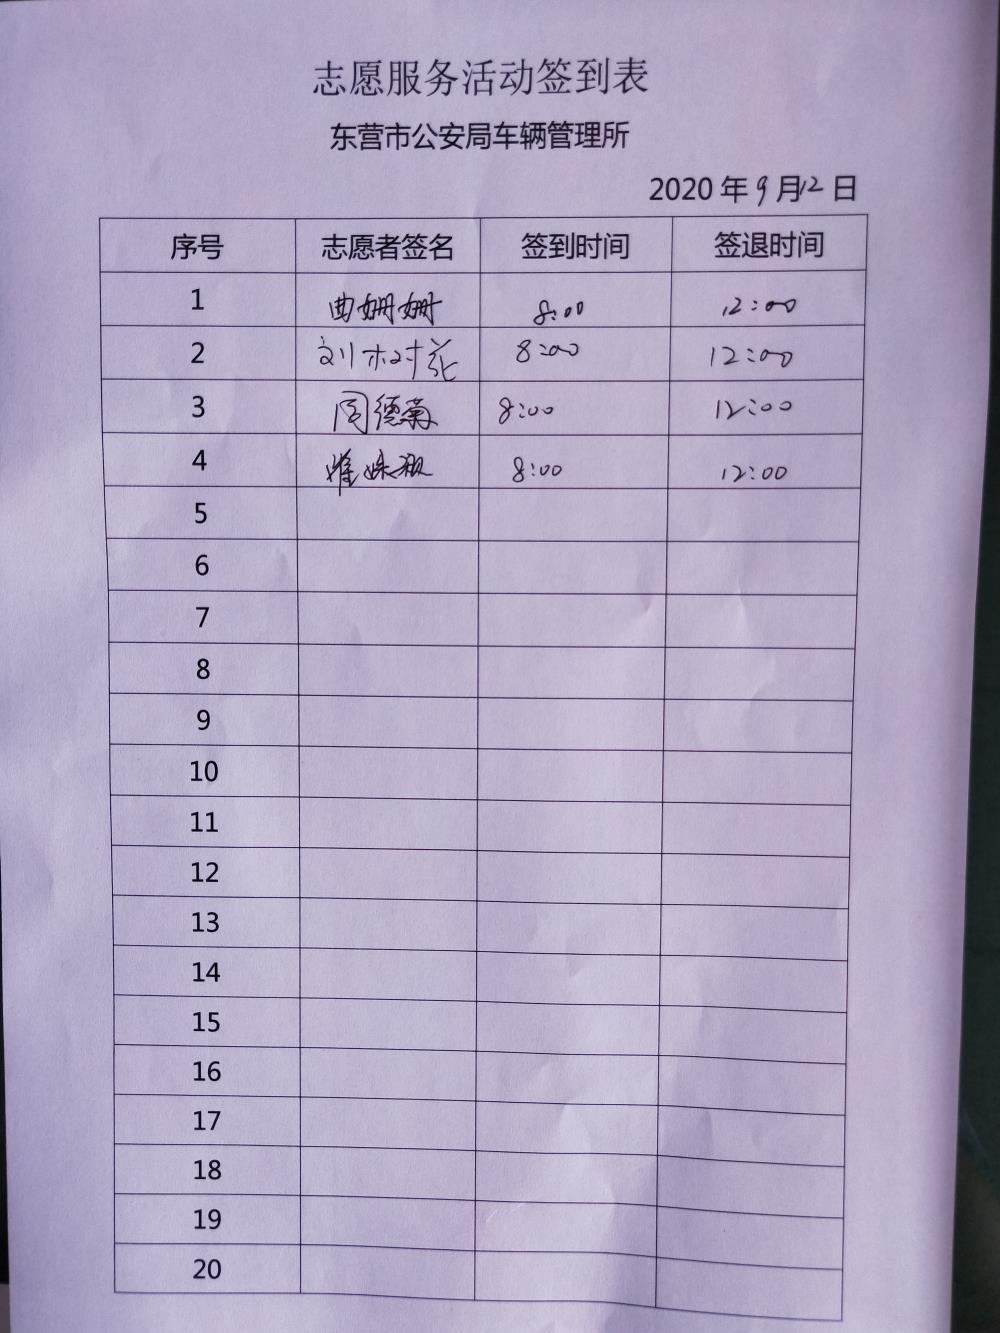 志愿服务活动签到表
东营市公安局车辆管理所
2020 年 9 月 12 日
序号 志愿者签名 签到时间 签退时间
1 曲姗姗 8:00 12:00
2 刘树花 8:00 12:00
3 周德菊 8:00 12:00
4 8:00 12:00
5
6
7
8
9
10
11
12
13
14
15
16
17
18
19
20